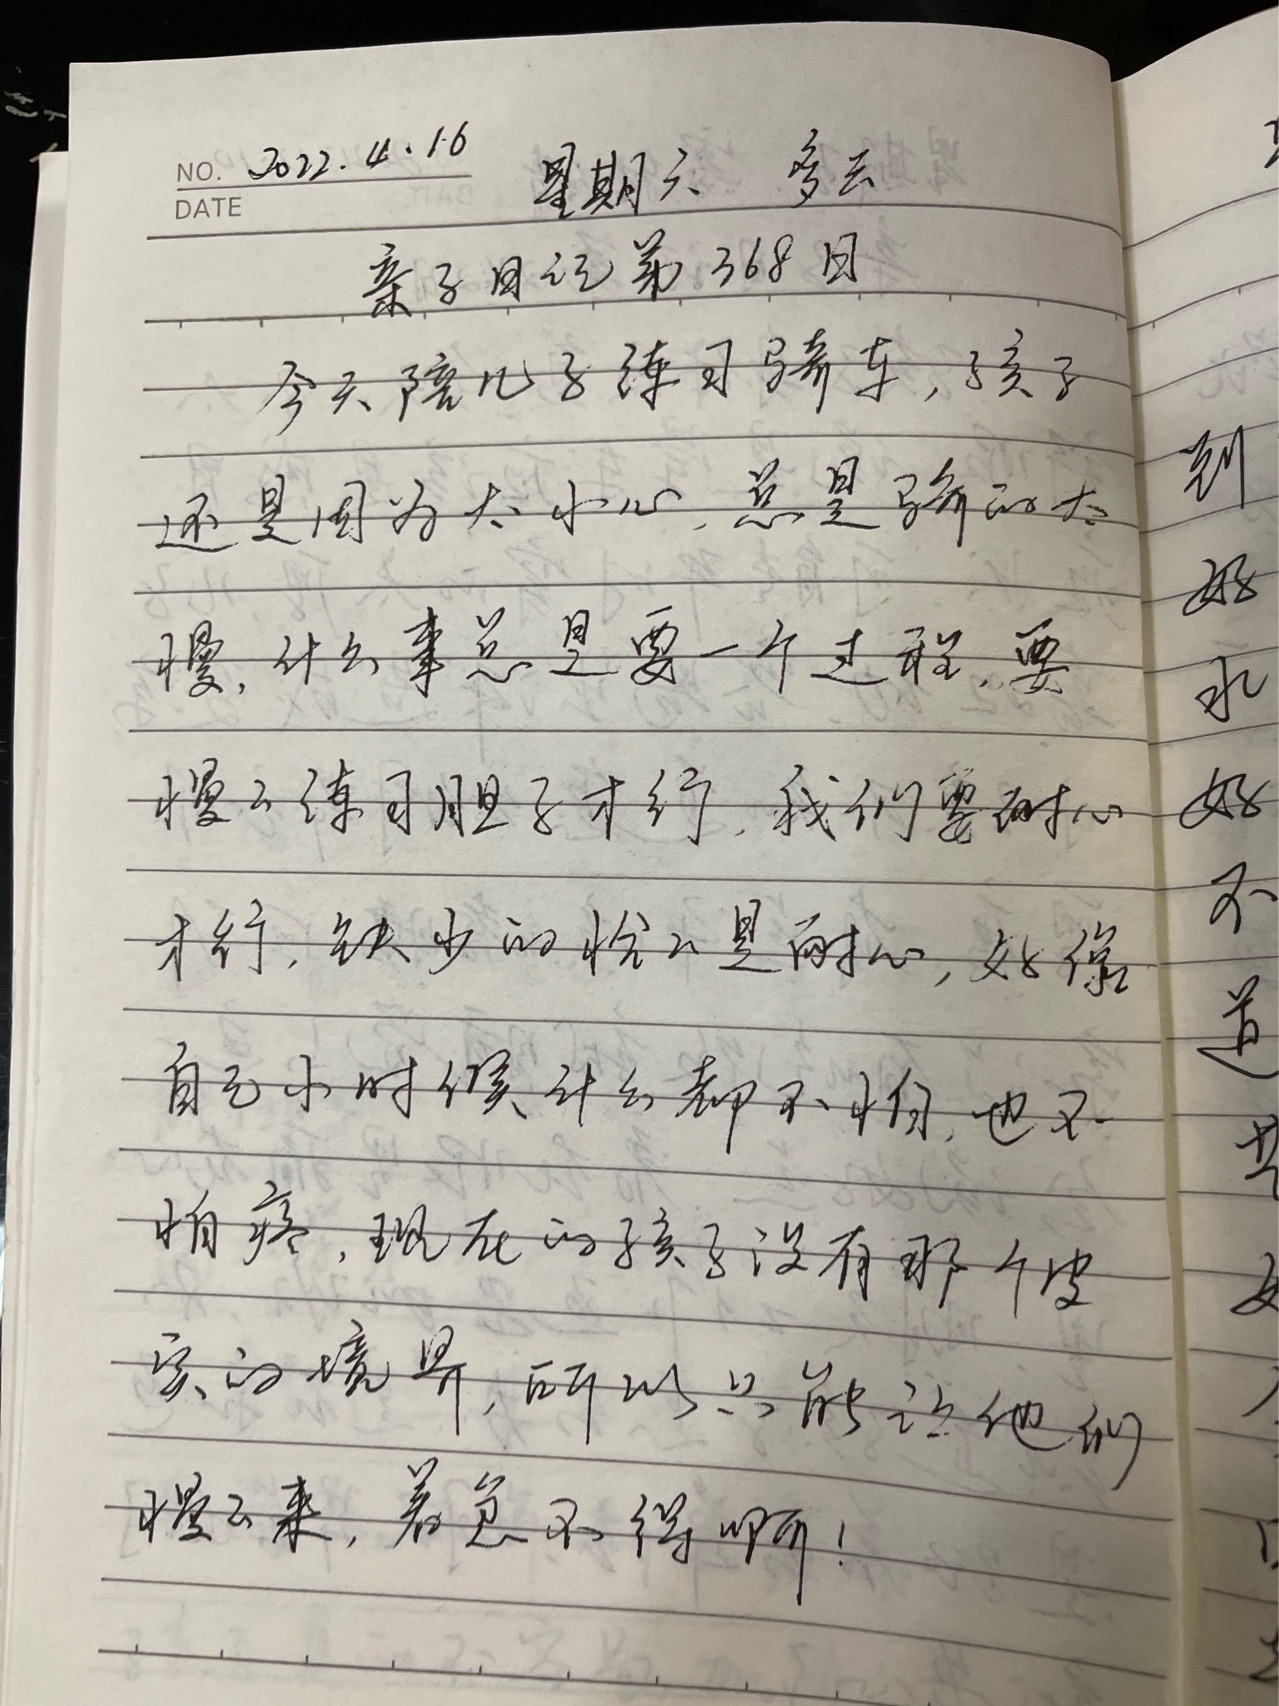 NO. 2022.4.16 星期六 多云
DATE
亲子日记第368日
今天陪儿子练习骑车,孩子
还是因为太小心,总是骑的太
慢,什么事总是要一个过程,要
慢々练习胆子才行,我们要耐心
才行,缺少的恰々是耐心,好像
自己小时候什么都不怕,也不
怕疼,现在的孩子没有那个皮
实的境界,所以只能让他们
慢々来,着急不得啊!
到
好
永
好
不
道